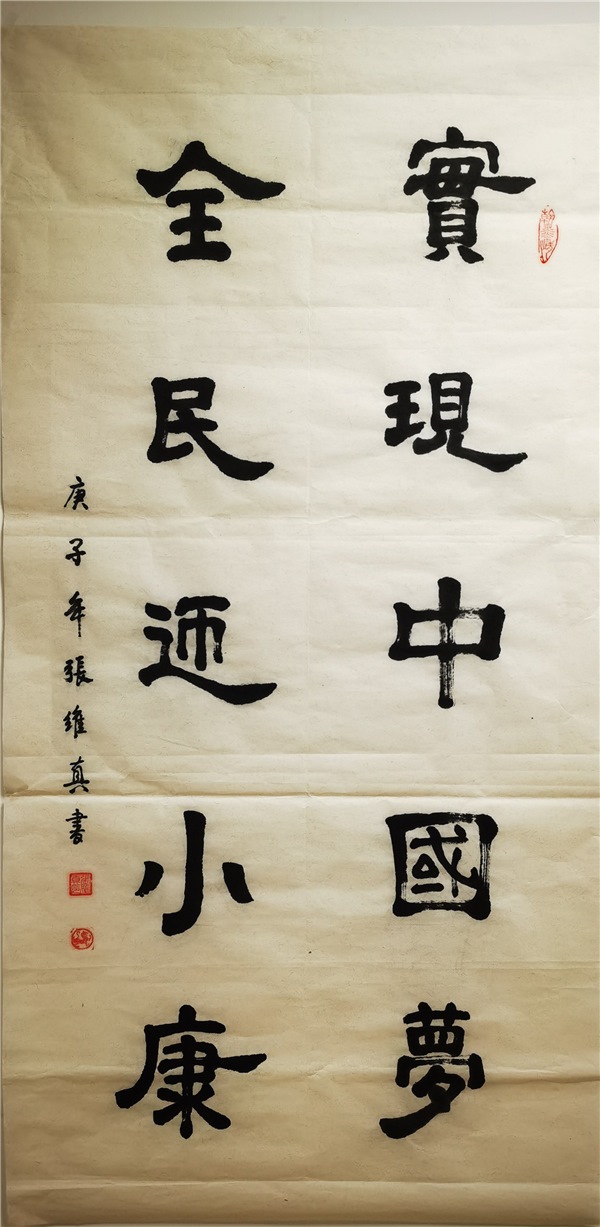 實現中國夢
全民迊小康
庚子年張維真書